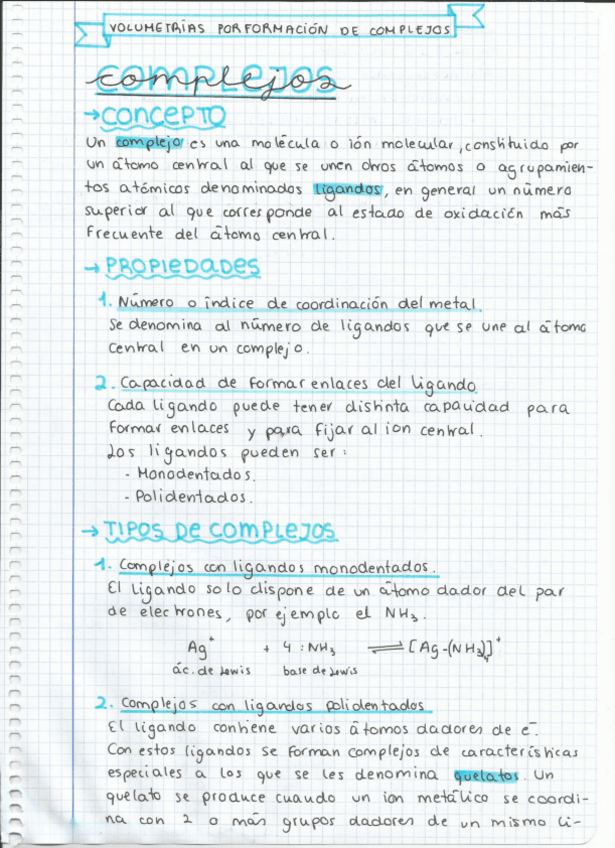 VOLUMETRÍAS POR FORMACIÓN DE COMPLEJOS
COMPLEJOS
complejos
→ CONCEPTO
Un complejo es una molécula o ión molecular, constituido por
un átomo central al que se unen otros átomos o agrupamien-
tos atómicos denominados ligandos, en general un número
superior al que corresponde al estado de oxidación más
frecuente del átomo central.
→ PROPIEDADES
1. Número o índice de coordinación del metal.
Se denomina al número de ligandos que se une al átomo
central en un complejo.
2. Capacidad de formar enlaces del ligando
Cada ligando puede tener distinta capacidad para
formar enlaces y para fijar al ion central.
Los ligandos pueden ser:
- Monodentados.
- Polidentados.
→ TIPOS DE COMPLEJOS
1. Complejos con ligandos monodentados.
El ligando solo dispone de un átomo dador del par
de electrones, por ejemplo el NH₃.
Ag⁺ + 4 :NH₃ ⇌ [Ag-(NH₃)₄]⁺
ác. de Lewis base de Lewis
2. Complejos con ligandos polidentados
El ligando contiene varios átomos dadores de e⁻.
Con estos ligandos se forman complejos de características
especiales a los que se les denomina quelatos. Un
quelato se produce cuando un ion metálico se coordi-
na con 2 o más grupos dadores de un mismo li-